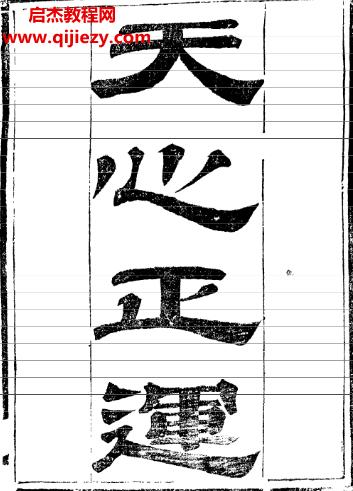 启杰教程网
www.qijiezy.com
天心正運